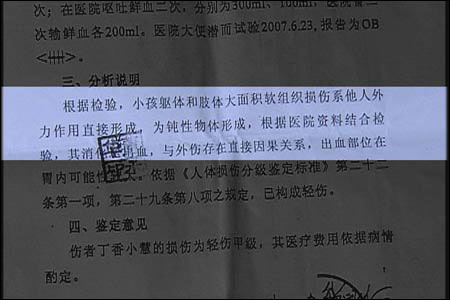 次；在医院呕吐鲜血二次，分别为300ml、100ml，医院曾二
次输鲜血各200ml。医院大便潜而试验2007.6.23,报告为OB
<卌>。
三、分析说明
根据检验，小孩躯体和肢体大面积软组织损伤系他人外
力作用直接形成，为钝性物体形成，根据医院资料结合检
验，其消化道出血，与外伤存在直接因果关系，出血部位在
胃内可能性大。依据《人体损伤分级鉴定标准》第二十二
条第一项，第二十九条第八项之规定，已构成轻伤。
四、鉴定意见
伤者丁香小慧的损伤为轻伤甲级，其医疗费用依据病情
酌定。